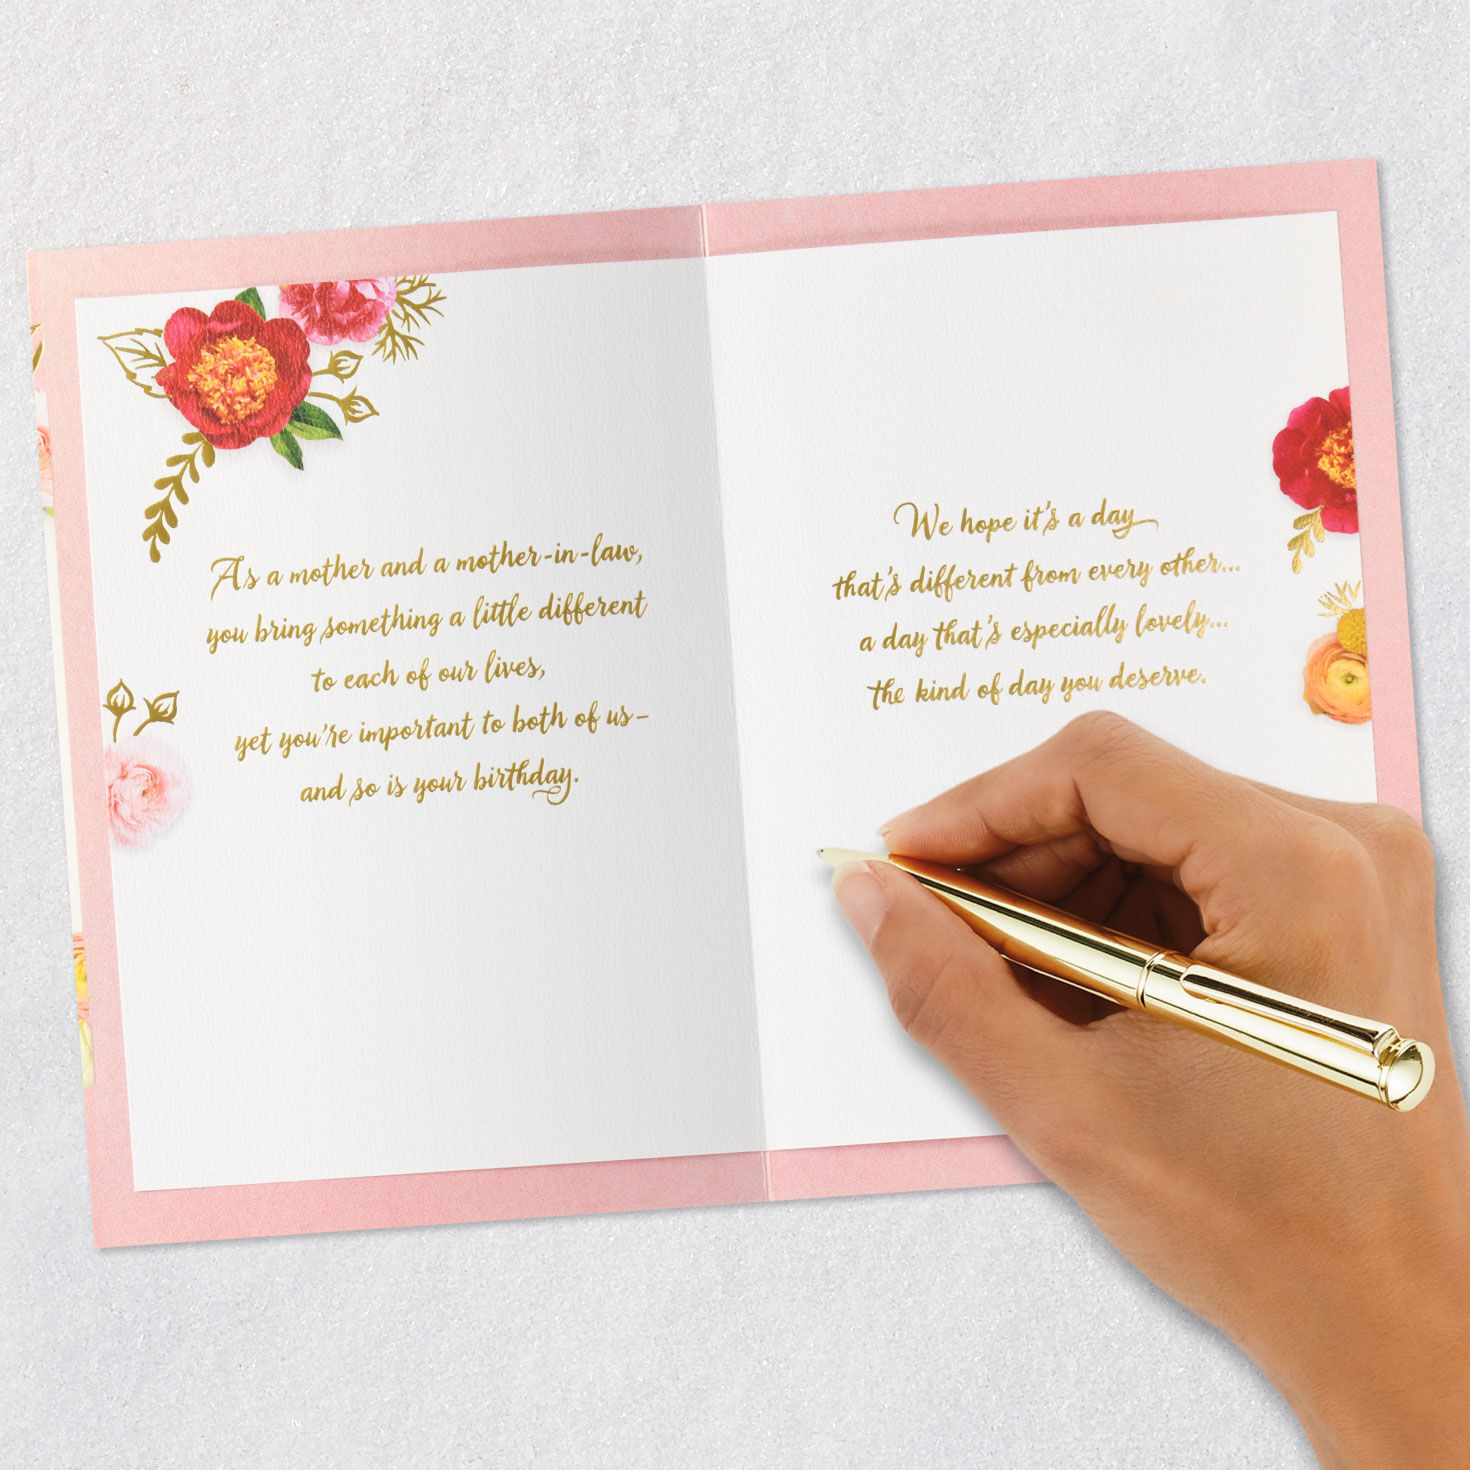 As a mother and a mother-in-law,
you bring something a little different
to each of our lives,
yet you're important to both of us–
and so is your birthday.
We hope it's a day
that's different from every other...
a day that's especially lovely...
the kind of day you deserve.